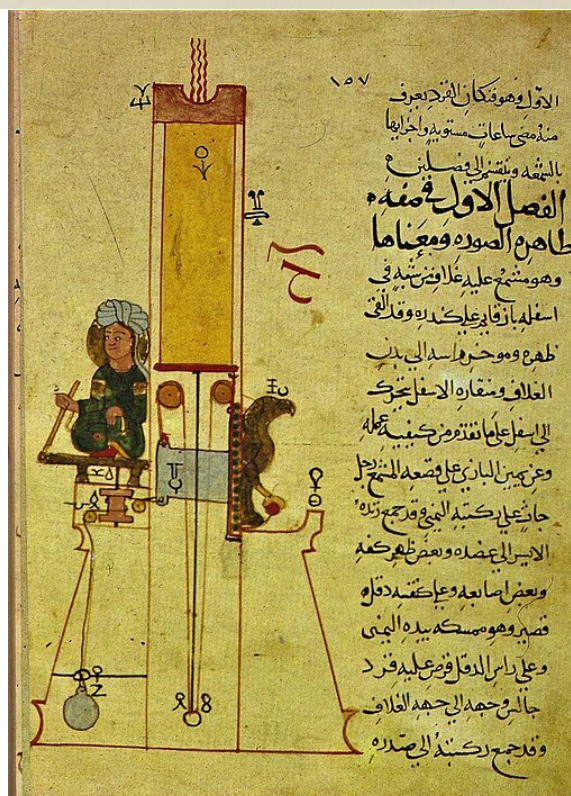 ١٥٧
الاول وهو فنكان القرد يعرف
منه مضي ساعات مستوية واجزايها
بالشمعه وينقسم الي فصلين
الفصل الاول في صفه
ظاهره الصوره ومعناها
وهو مشمع عليه غلاف شبه في
اسفله باز قايم علي كندره وقد القي
ظهره وموخر راسه الي بدن
الغلاف ومنقاره الاسفل يتحرك
الي اسفل علي ما تقدم من كيفيه عمله
وعن يمين البازي علي قصعه المشمع رجل
جاث علي ركبته اليمني وقد جمع زنده
الايسر الي عضده وبعض ظهر كفه
وبعض اصابعه وعلي كتفه دقل
قصير وهو ممسكه بيده اليمني
وعلي راس الدقل قرص عليه قرد
جالس وجهه الي جهه الغلاف
وقد جمع ركبته الي صدره